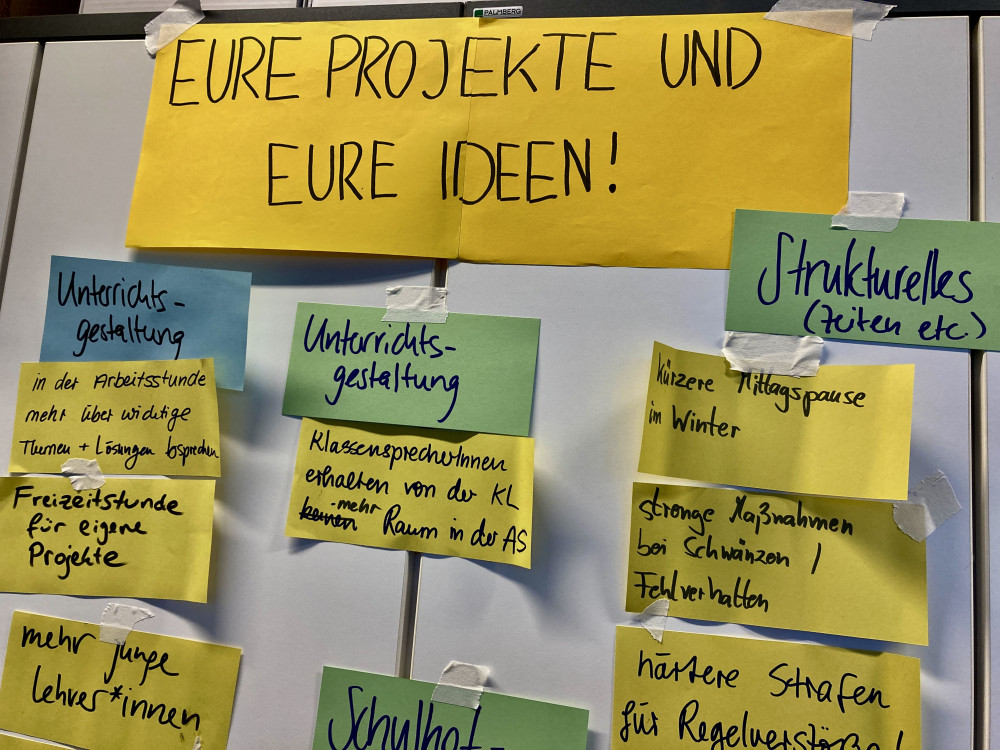 PALMBERG
EURE PROJEKTE UND
EURE IDEEN!
Unterrichts-
gestaltung
in der Arbeitsstunde
mehr über wichtige
Themen + Lösungen besprechen
Freizeitstunde
für eigene
Projekte
mehr junge
Lehrer*innen
Unterrichts-
gestaltung
KlassensprecherInnen
erhalten von der KL
keinen mehr Raum in der AS
Schulhof-
Strukturelles
(Zeiten etc.)
kürzere Mittagspause
im Winter
strenge Maßnahmen
bei Schwänzen /
Fehlverhalten
härtere Strafen
für Regelverstöße!